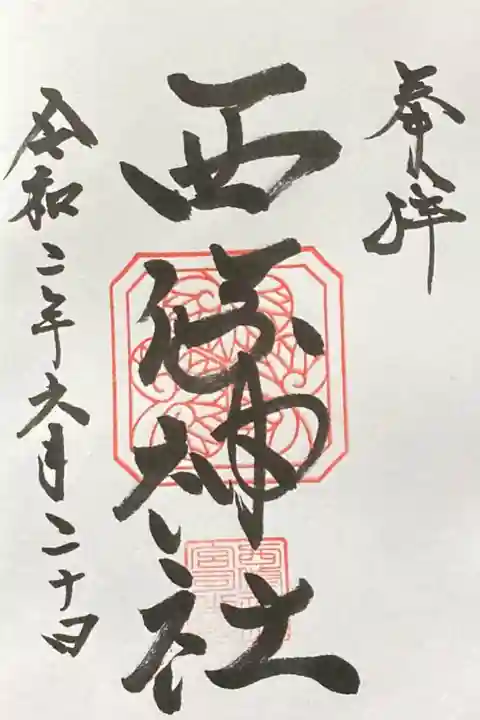 奉拝
西 神社
令和二年六月二十日